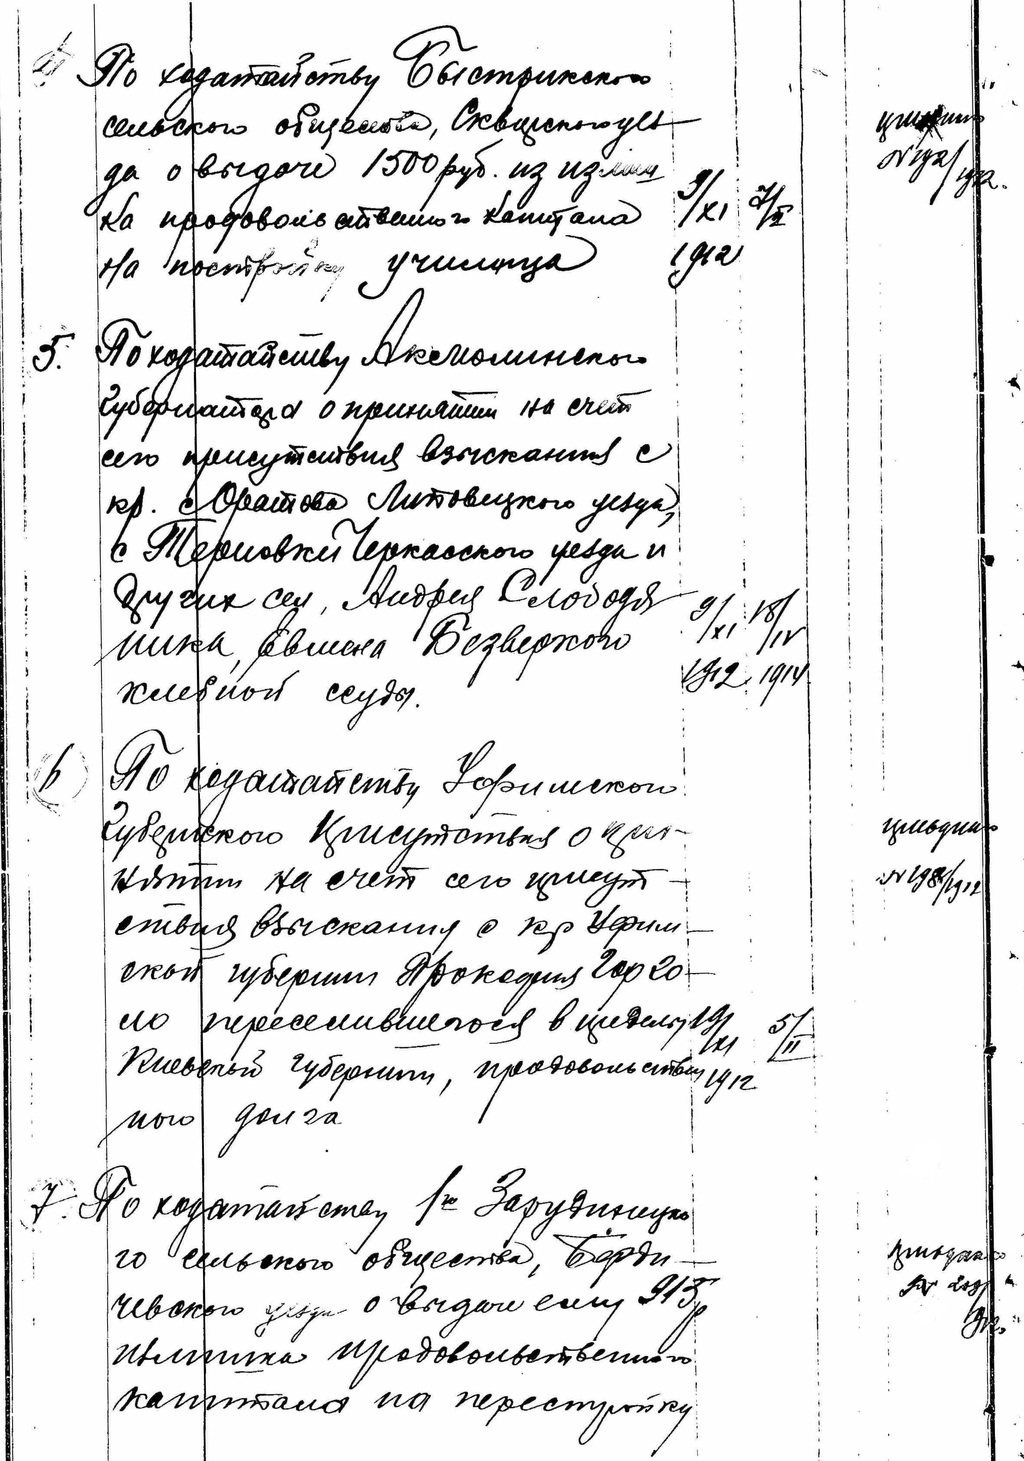 4) По ходатайству Быстрикскаго
сельскаго общества, Сквирскаго уез-
да о выдаче 1500 руб. из излиш
ка продовольственнаго капитала
на постройку училища
9/XI 1912
7/II
№ 192/1912.
5. По ходатайству Акмолинскаго
Губернатора о принятии на счет
сего присутствия взыскания с
кр. с Оратова Липовецкаго уезда,
с Терновки Черкасскаго уезда и
других сел, Андрея Слободя
ника, Евмена Безверхого
хлебной ссуды.
9/XI 1912
18/IV 1914
6) По ходатайству Уфимскаго
Губернскаго Присутствия о при-
нятии на счет сего присут-
ствия взыскания с кр Уфим-
ской губернии Прокофия Горго-
ло переселившегося в пределы
Киевской губернии, продовольствен
ного долга
19/XI 1912
5/II
№ 198/1912
7. По ходатайству 1го Зарудинецка
го сельского общества, Берди-
чевского уезда о выдаче ему 915 р
излишка продовольственного
капитала на перестройку